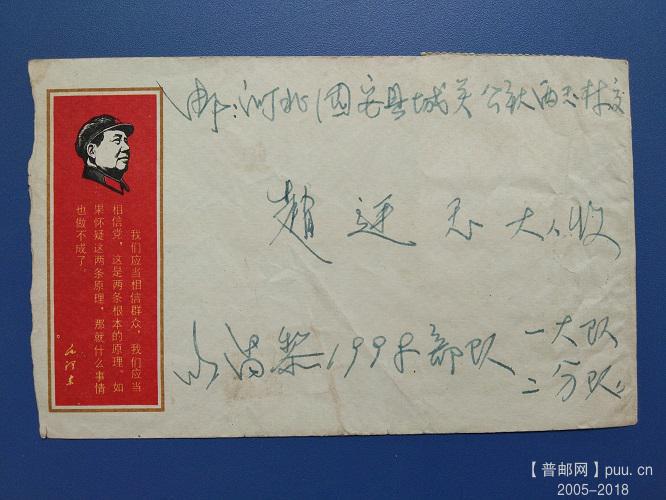 邮:河北固安县城关公社西忠村交
赵廷忠大人收
从昌黎1994部队
一大队
二分队
我们应当相信群众,我们应当
相信党,这是两条根本的原理。如
果怀疑这两条原理,那就什么事情
也做不成了。
毛泽东
【普邮网】puu.cn
2005-2018